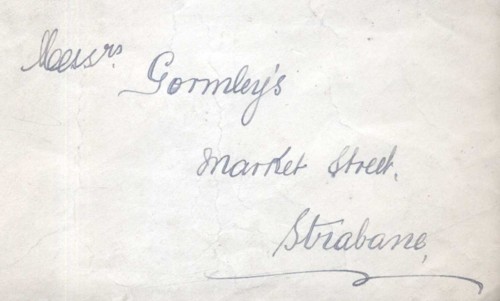 Messrs.
Gormley's
Market Street,
Strabane,